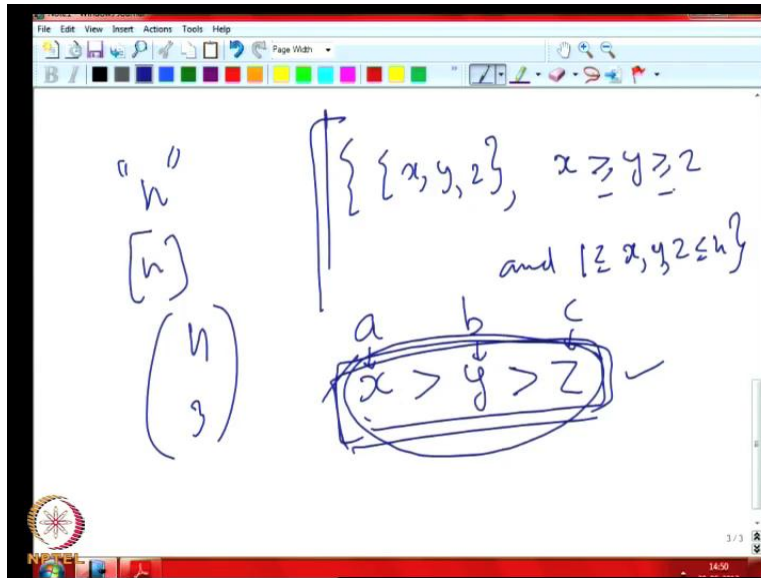 File Edit View Insert Actions Tools Help
Page Width
B I
"n"
[n]
(n
3)
{ {x, y, z}, x ≥ y ≥ z
and 1 ≤ x, y, z ≤ n}
a b c
x > y > z ✓
3 / 3
NPTEL
14:50